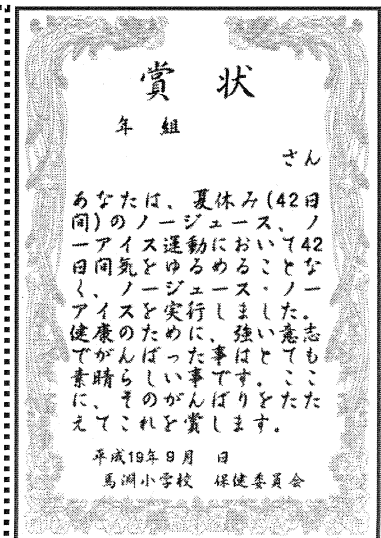 賞 状
年 組
さん
あなたは、夏休み(42日
間)のノージュース、ノ
ーアイス運動において42
日間気をゆるめることな
く、ノージュース・ノー
アイスを実行しました。
健康のために、強い意志
でがんばった事はとても
素晴らしい事です。ここ
に、そのがんばりをたた
えてこれを賞します。
平成19年9月 日
馬淵小学校 保健委員会